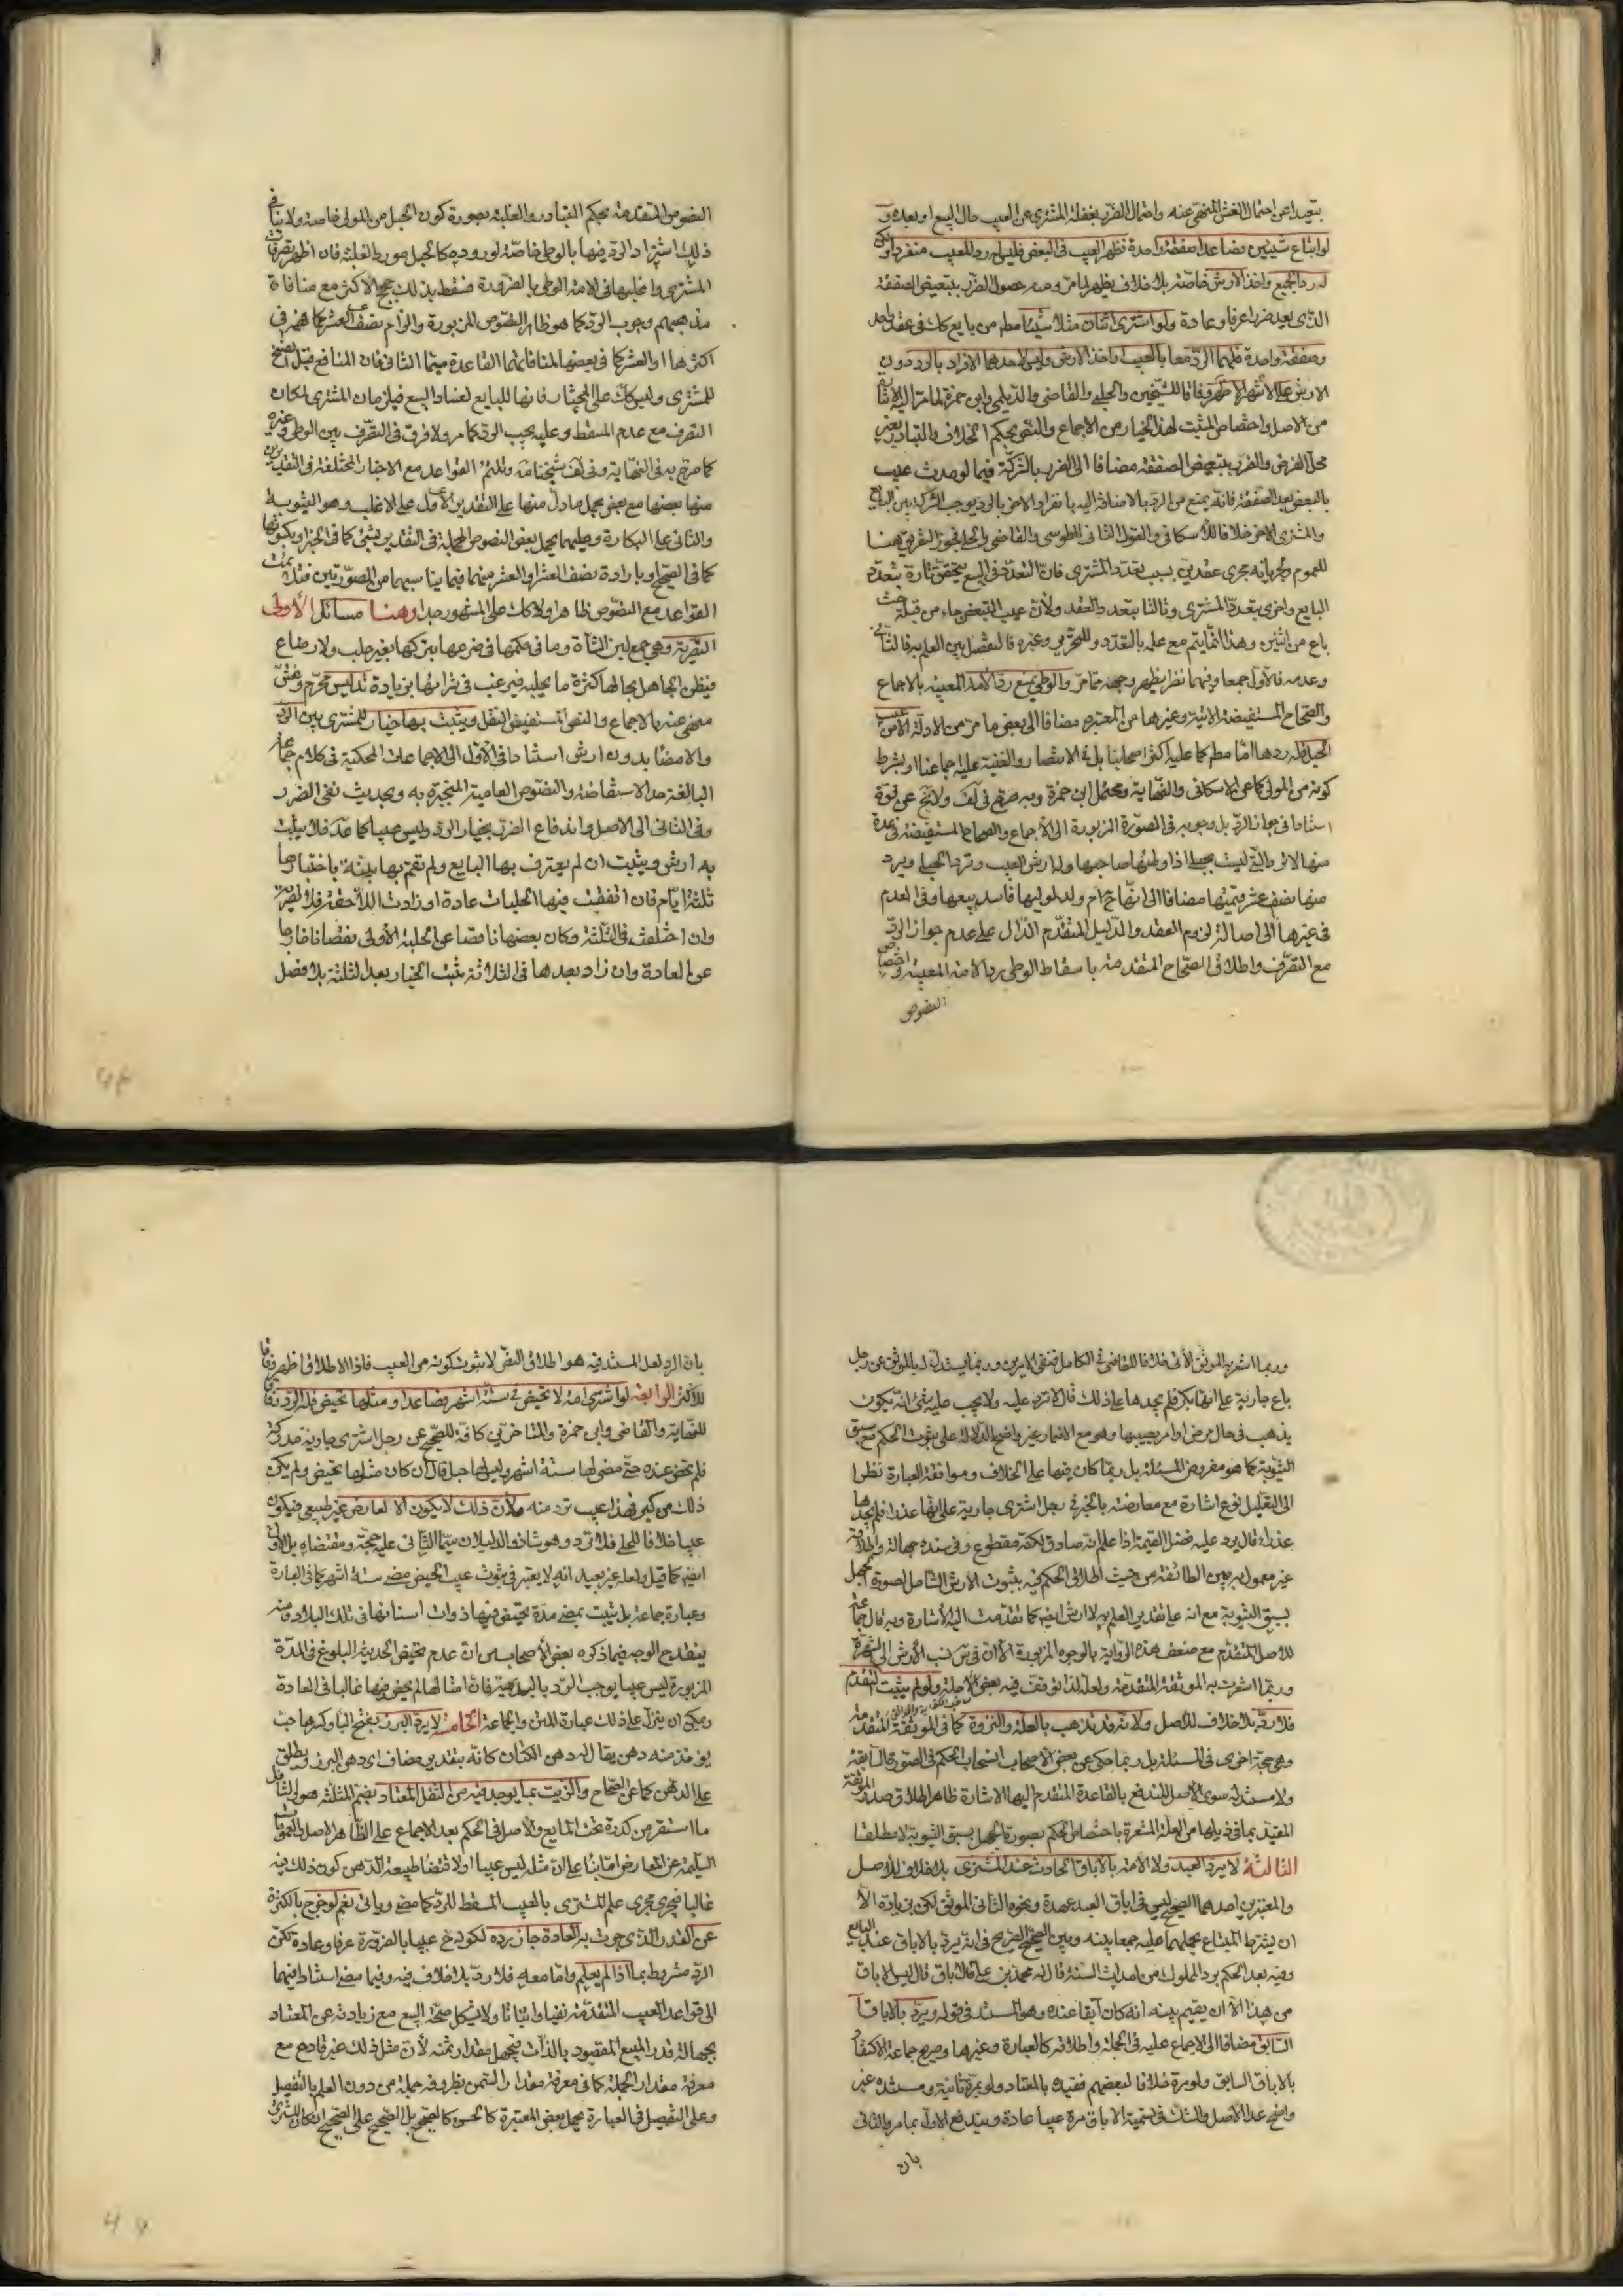 بتعبيداعن احتمال الغش المنهى عنه واحتمال الضرر بغفلة المشترى عن العيب حال البيع او بعده و
لوابتاع شيئين فصاعدا صفقة واحدة فظهر العيب فى البعض فليس له رد المعيب منفردا و
له رد الجميع واخذ الارش خاصة بلاخلاف يظهر لمامر ومنه حصول الضرر بتبعيض الصفقة
الذى يعد ضررا عرفا وعادة ولو اشترى اثنان مثلا شيئا مطم من بايع كك فى عقد واحد
وصفقة واحدة فلهما الرد معا بالعيب واخذ الارش وليس لاحدهما الافراد بالرد دون
الارش على الاشهر الاظهر وفاقا للشيخين والحلبى والقاضى والديلمى وابن حمزة لمامر اليه الاشارة
من الاصل واختصاص المثبت لهذا الخيار من الاجماع والنص بحكم الخلاف والتبادر بغير
محل الفرض والضرر بتبعيض الصفقة مضافا الى الضرر بالشركة فيما لوحدث عيب
بالبعض بعد الصفقة فانه يمنع من الرد بالاضافة اليه بانفراد الاخر بالرد يوجب الشركة بين البايع
والمشترى الاخر خلافا للاسكافى والقول الثانى للطوسى والقاضى والحلى فجوزوا التفريق هنا
للعموم ولجريانه مجرى عقدين بسبب تعدد المشترى فان التعدد فى البيع يتحقق تارة بتعدد
البايع واخرى بتعدد المشترى وثالثا بتعدد العقد ولان عيب التبعيض جاء من قبله حيث
باع من اثنين وهذا انما يتم مع علمه بالتعدد وللتحرير وغيره فالتفصيل بين العلم به فالثانى
وعدمه فالاول جمعا وفيهما نظر يظهر وجهه مما مر والوطى يمنع رد الامة المعيبة بالاجماع
والصحاح المستفيضة الاتية وغيرها من المعتبرة مضافا الى بعض مامر من الادلة الا من عيب
الحبل فله ردها اما مطم كما عليه اكثر اصحابنا بل فى الانتصار والغنية عليه اجماعنا او بشرط
كونه من المولى كما عن الاسكافى والنهاية ومحتمل ابن حمزة وبه صرح فى لف ولا يخ عن قوة
استنادا فى جواز الرد بل وجوبه فى الصورة المزبورة الى الاجماع والصحاح المستفيضة فى عدة
منها لاترد التى ليست بحبلى اذا وطئها صاحبها وله ارش العيب وترد الحبلى ويرد
معها نصف عشر قيمتها مضافا الى انها ح ام ولد لموليها فاسد بيعها وفى العدم
فى غيرها الى اصالة لزوم العقد والدليل المتقدم الدال على عدم جواز الرد
مع التصرف واطلاق الصحاح المتقدمة باسقاط الوطى رد الامة المعيبة واختصاص
النصوص
النصوص المتقدمة بحكم التبادر والغلبة بصورة كون الحبل من المولى خاصة ولاينافى
ذلك اشتراط الرد فيها بالوطى خاصة لوروده كالحبل مورد الغلبة فان اظهر تصرفات
المشترى واغلبها فى الامة الوطى بالضرورة فسقط بذلك حجج الاكثر مع منافاة
مذهبهم وجوب الرد كما هو ظاهر النصوص المزبورة والزام نصف العشر كما هو فى
اكثرها او العشر كما فى بعضها لمنافاتهما القاعدة سيما الثانى فان المنافع قبل الفسخ
للمشترى وليس كك على المختار فانها للبايع لفساد البيع فيلزمان المشترى لمكان
التصرف مع عدم المسقط وعليه يجب الرد كما مر ولافرق فى التصرف بين الوطى وغيره
كما صرح به فى النهاية وفى لف شيخنا مة وتلتئم القواعد مع الاخبار المختلفة فى التقديرين
منها بعضها مع بعض بحمل مادل منها على التقدير الاول على الاغلب وهو الثيوبة
والثانى على البكارة وعليهما يحمل بعض النصوص المجملة فى التقدير بشئ كما فى الخبر او يكسوتها
كما فى الصحيح او بارادة نصف العشر او العشر منهما فيما يناسبهما من الصورتين فتدبر
القواعد مع النصوص ظاهرا ولاكك على المشهور جدا وهنا مسائل الاولى
التصرية وهى جمع لبن الشاة وما فى حكمها فى ضرعها بتركها بغير حلب ولارضاع
فيظن الجاهل بحالها كثرة ما يحلبه فيرغب فى شرائها بزيادة تدليس محرم وغش
منهى عنه بالاجماع والنص المستفيض النقل ويثبت بها خيار للمشترى بين الرد
والامضاء بدون ارش استنادا فى الاول الى الاجماعات المحكية فى كلام جماعة
البالغة حد الاستفاضة والنصوص العامية المنجبرة به وبحديث نفى الضرر
وفى الثانى الى الاصل واندفاع الضرر بخيار الرد وليس عيبا كما عد فلا يثبت
به ارش ويثبت ان لم يعترف بها البايع ولم تقم بها بينة باختبارها
ثلثة ايام فان اتفقت فيها الحلبات عادة او زادت اللاحقة فلا تصرية
وان اختلفت فى الثلثة وكان بعضها ناقصا عن الحلبة الاولى نقصانا خارجا
عن العادة وان زاد بعدها فى الثلاثة يثبت الخيار بعد الثلثة بلا فصل
وربما اشعر به الموثق الاتى خلافا للقاضى فى الكامل فنفى الامرين وربما يستدل له بالموثق عن رجل
باع جارية على انها بكر فلم يجدها على ذلك قال لا ترد عليه ولايجب عليه شئ انه يكون
يذهب فى حال مرض او امر يصيبها وهو مع الاضمار غير واضح الدلالة على ثبوت الحكم مع سبق
الثيوبة كما هو مفروض المسئلة بل ربما كان فيها على الخلاف وموافقة العبارة نظرا
الى التعليل نوع اشارة مع معارضته بالخبر فى رجل اشترى جارية على انها عذراء فلم يجدها
عذراء قال يرد عليه فضل القيمة اذا علم انه صادق لكنه مقطوع وفى سنده جهالة واطلاقه
غير معمول به بين الطائفة من حيث اطلاق الحكم فيه بثبوت الارش الشامل لصورة الجهل
بسبق الثيوبة مع انه على تقدير العلم به لا ارش ايضا كما تقدمت اليه الاشارة وبه قال جماعة
للاصل المتقدم مع ضعف هذه الرواية بالوجوه المزبورة الا ان فى س نسب الارش الى الشهرة
وربما اشعرت به الموثقة المتقدمة ولعله لذا توقف فيه بعض الاجلة ولو لم يثبت التقدم
فلا رد بلا خلاف للاصل ولانه قد يذهب بالعلة والنزوة كما فى الموثقة المتقدمة
وهو حجة اخرى فى المسئلة بل ربما حكى عن بعض الاصحاب انسحاب الحكم فى الصورة السابقة
ولا مستند له سوى الاصل المندفع بالقاعدة المتقدم اليها الاشارة ظاهر اطلاق صدر الموثقة
المقيد بما فى ذيلها من العلة المشعرة باختصاص الحكم بصورة الجهل بسبق الثيوبة لا مطلقا
الثالثة لايرد العبد ولا الامة بالاباق الحادث عند المشترى بلاخلاف للاصل
والمعتبرين احدهما الصحيح ليس فى اباق العبد عهدة ونحوه الثانى الموثق لكن بزيادة الا
ان يشترط المبتاع بحملهما عليه جمعا بينه وبين الصحيح الصريح فى انه يرد بالاباق عند البايع
وفيه بعد الحكم برد المملوك من احداث السنة قال له محمد بن على فالاباق قال ليس الاباق
من هذا الا ان يقيم بينه انه كان ابقا عنده وهو المستند فى قوله ويرد بالاباق
السابق مضافا الى الاجماع عليه فى الجملة واطلاقه كالعبارة وغيرها وصريح جماعة الاكتفاء
بالاباق السابق ولو مرة خلافا لبعضهم فقيده بالمعتاد ولو بمرة ثانية ومستنده غير
واضح عدا الاصل والشك فى تسمية الاباق مرة عيبا عادة ويندفع الاول بما مر والثانى
بان
بان الرد لعل المستند فيه هو اطلاق النص لا ثبوت كونه من العيب فاذا الاطلاق اظهر وفاقا
للاكثر الرابعة لو اشترى امة لا تحيض فى ستة اشهر فصاعدا ومثلها تحيض فله الرد وفاقا
للنهاية والقاضى وابن حمزة والمتاخرين كافة للصحيح عن رجل اشترى جارية مدركة
فلم تحض عنده حتى مضى لها ستة اشهر وليس لها حبل قال ان كان مثلها تحيض ولم يكن
ذلك من كبر فهذا عيب ترد منه ولان ذلك لايكون الا لعارض غير طبيعى فيكون
عيبا خلافا للحلى فلا ترد وهو شاذ والدليلان سيما الثانى عليه حجة ومقتضاه بل الاول
ايضا كما قيل ولعله غير بعيد انه لا يعتبر فى ثبوت عيب الحيض مضى ستة اشهر كما فى العبارة
وعبارة جماعة بل يثبت بمضى مدة تحيض فيها ذوات اسنانها فى تلك البلاد ومنه
ينقدح الوجه فيما ذكره بعض الاصحاب من ان عدم تحيض الحديثة البلوغ فى المدة
المزبورة ليس عيبا يوجب الرد بالبديهة فان امثالها لم يحضن فيها غالبا فى العادة
ويمكن ان ينزل على ذلك عبارة المتن والجماعة الخامسة لايرد البزر بفتح الباء وكسرها حب
يؤخذ منه دهن يقال له دهن الكتان كانه بتقدير مضاف اى دهن البزر ويطلق
على الدهن كما عن الصحاح والزيت بما يوجد فيه من الثفل المعتاد بضم المثلثة هو والثافل
ما استقر من كدرة تحت المايع والاصل فى الحكم بعد الاجماع على الظاهر الاصل والعمومات
السليمة عن المعارض اما بناء على ان مثله ليس عيبا او لاقتضاء طبيعة الدهن كون ذلك فيه
غالبا فيجرى مجرى علم المشترى بالعيب المسقط للرد كما مضى وياتى نعم لو خرج بالكثرة
عن القدر الذى جرت به العادة جاز رده لكونه ح عيبا بالضرورة عرفا وعادة لكن
الرد مشروط بما اذا لم يعلم واما معه فلا رد بلا خلاف فيه وفيما مضى استنادا فيهما
الى قواعد العيب المتقدمة نفيا واثباتا ولا يشكل صحة البيع مع زيادته عن المعتاد
بجهالة قدر المبيع المقصود بالذات فيجهل مقدار ثمنه لان مثل ذلك غير قادح مع
معرفة مقدار الجملة كما فى معرفة مقدار السمن بظروفه جملة من دون العلم بالتفصيل
وعلى التفصيل فى العبارة يحمل بعض المعتبرة كالحسن كالصحيح بل الصحيح على الصحيح ان كان المشترى